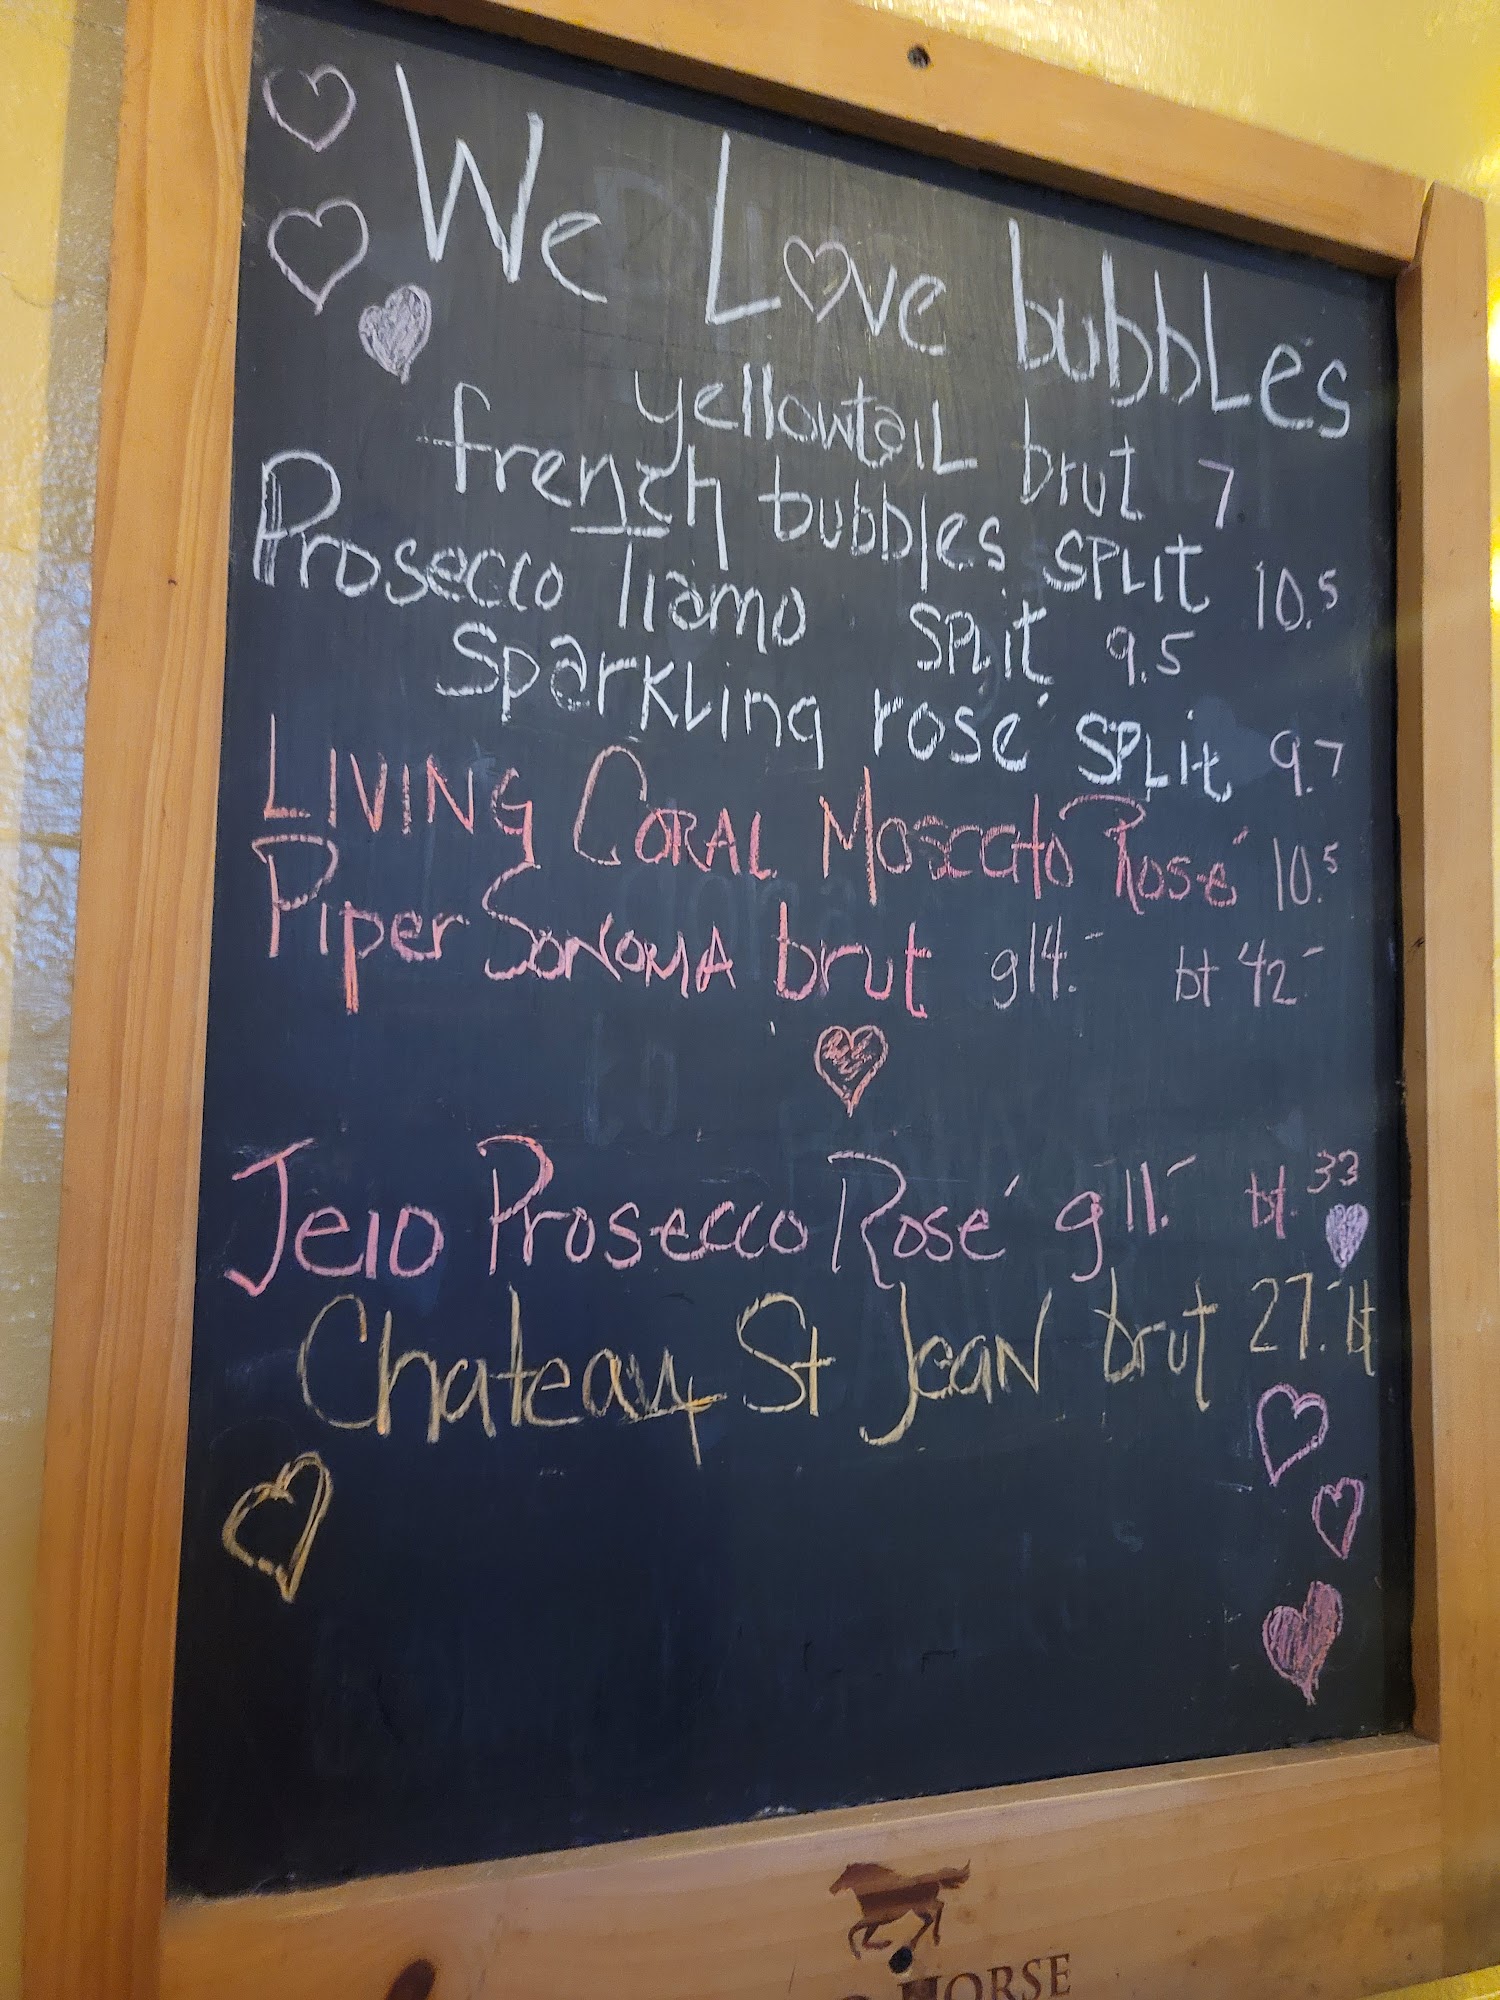 We Love bubbLes
yellowtaiL brut 7
french bubbles SPLIT 10.5
Prosecco Tiamo SPLiT 9.5
Sparkling rosé SPLit 9.7
LIVING CORAL Moscato Rosé 10.5
Piper SONOMA brut g14.- bt 42.-
Jeio Prosecco Rosé g11.- bt. 33
Chateau St JeaN brut 27.- bt
HORSE